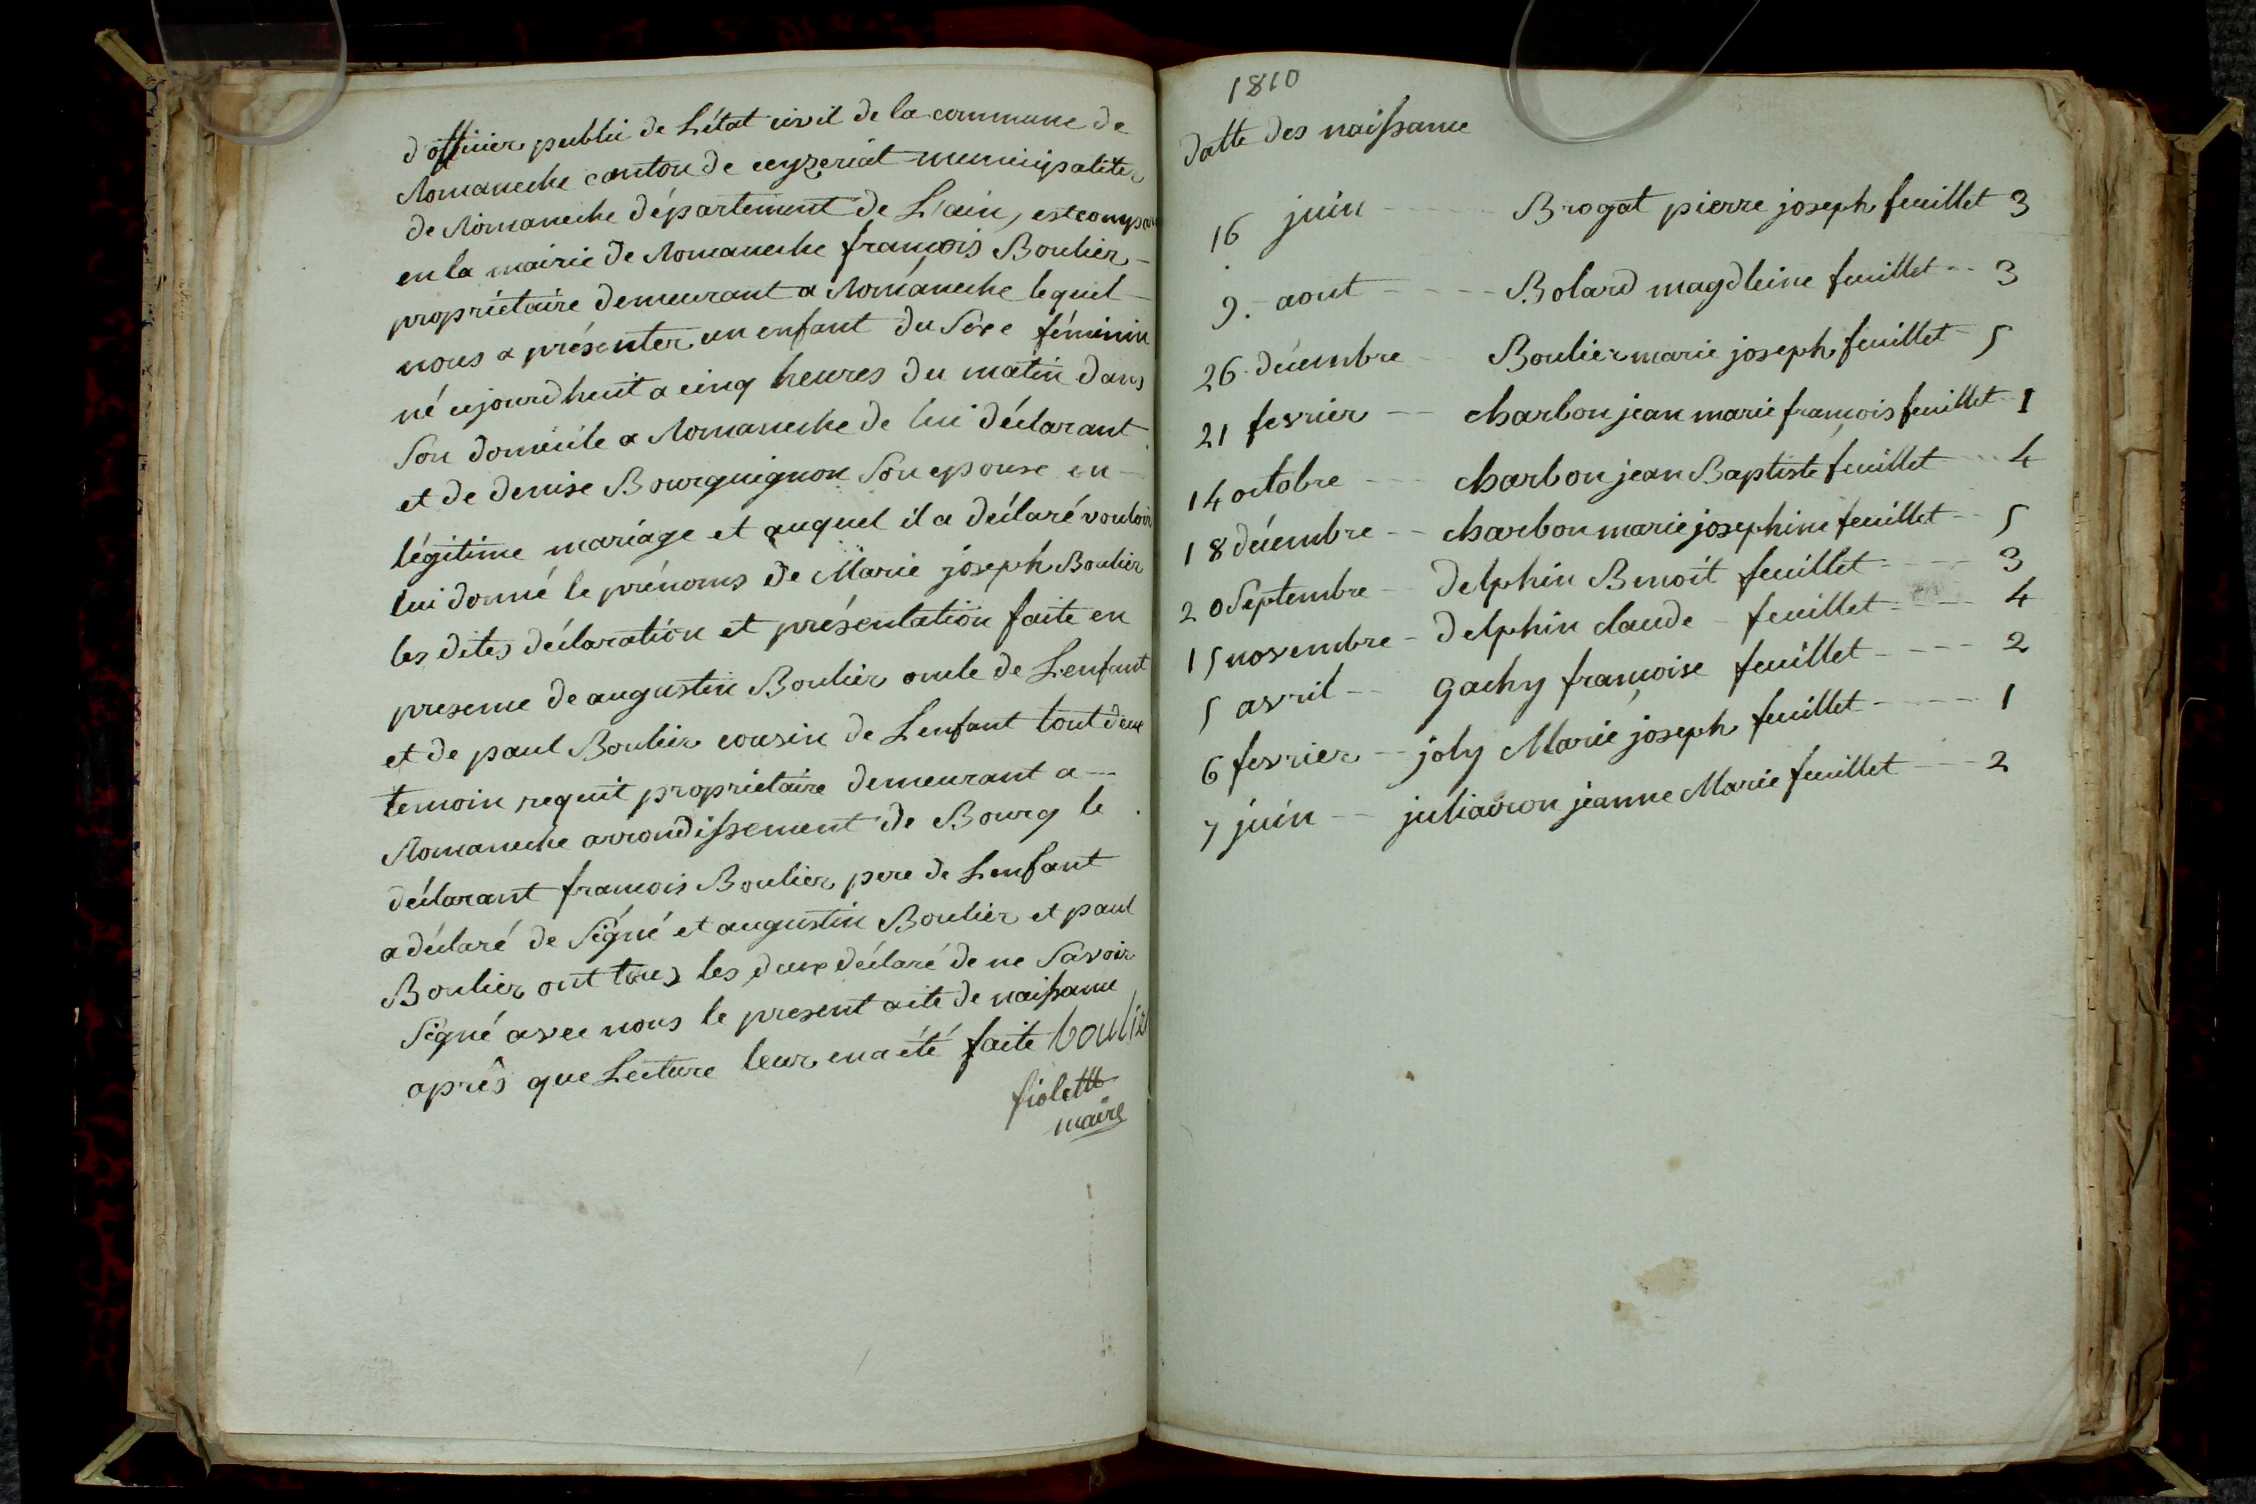 d'officier public de L'état civil de la commune de
Romaneche canton de ceyzeriat municipaliter
de Romaneche département de L'ain, est comparu
en la mairie de Romaneche francois Boulier
propriétaire demeurant a Romaneche lequel
nous a présenter un enfant du Séxe féminin
né cejourdhuit a cinq heures du matin dans
Son domicile a Romaneche de lui déclarant
et de denise Bourguignon Son epouse en
légitime mariage et auquel il a déclaré vouloir
lui donné le prénoms de Marie joseph Boulier
les dites déclaration et présentation faite en
presence de augustin Boulier oncle de L'enfant
et de paul Boulier cousin de L'enfant tout deux
temoin requit proprietaire demeurant a
Romaneche arrondissement de Bourg le
déclarant francois Boulier pere de L'enfant
a déclaré de Signé et augustin Boulier et paul
Boulier ont tous les deux déclaré de ne Savoir
Signé avec nous le present acte de naissance
après que Lecture leur en a été faite boulier
fiolettt
maire
1810
datte des naissance
16 juin Brogat pierre joseph feuillet 3
9. aout Bolard magdleine feuillet 3
26 décembre Boulier marie joseph feuillet 5
21 fevrier charbon jean marie francois feuillet 1
14 octobre charbon jean Baptiste feuillet 4
18 décembre charbon marie josephine feuillet 5
20 Septembre delphin Benoit feuillet 3
15 novembre delphin claude feuillet 4
5 avril gachy françoise feuillet 2
6 fevrier joly Marie joseph feuillet 1
7 juin juliairon jeanne Marie feuillet 2